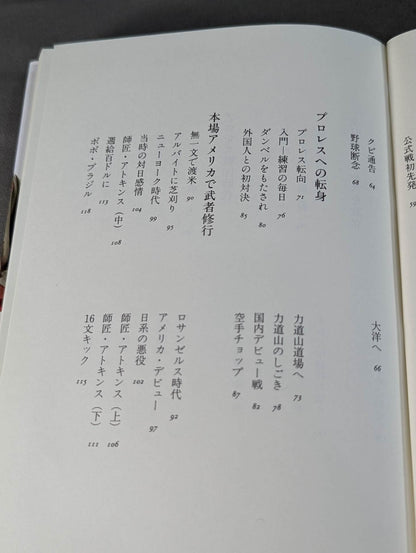 公式戦初先発 59
クビ通告 64
大洋へ 66
野球断念 68
プロレスへの転身
プロレス転向 71
力道山道場へ 73
入門―練習の毎日 76
力道山のしごき 78
ダンベルをもたされ 80
国内デビュー戦 82
外国人との初対決 85
空手チョップ 87
本場アメリカで武者修行
無一文で渡米 90
ロサンゼルス時代 92
アルバイトに芝刈り 95
アメリカ・デビュー 97
ニューヨーク時代 99
日系の悪役 102
当時の対日感情 104
師匠・アトキンス(上) 106
師匠・アトキンス(中) 108
師匠・アトキンス(下) 111
週給百ドルに 113
16文キック 115
ボボ・ブラジル 118